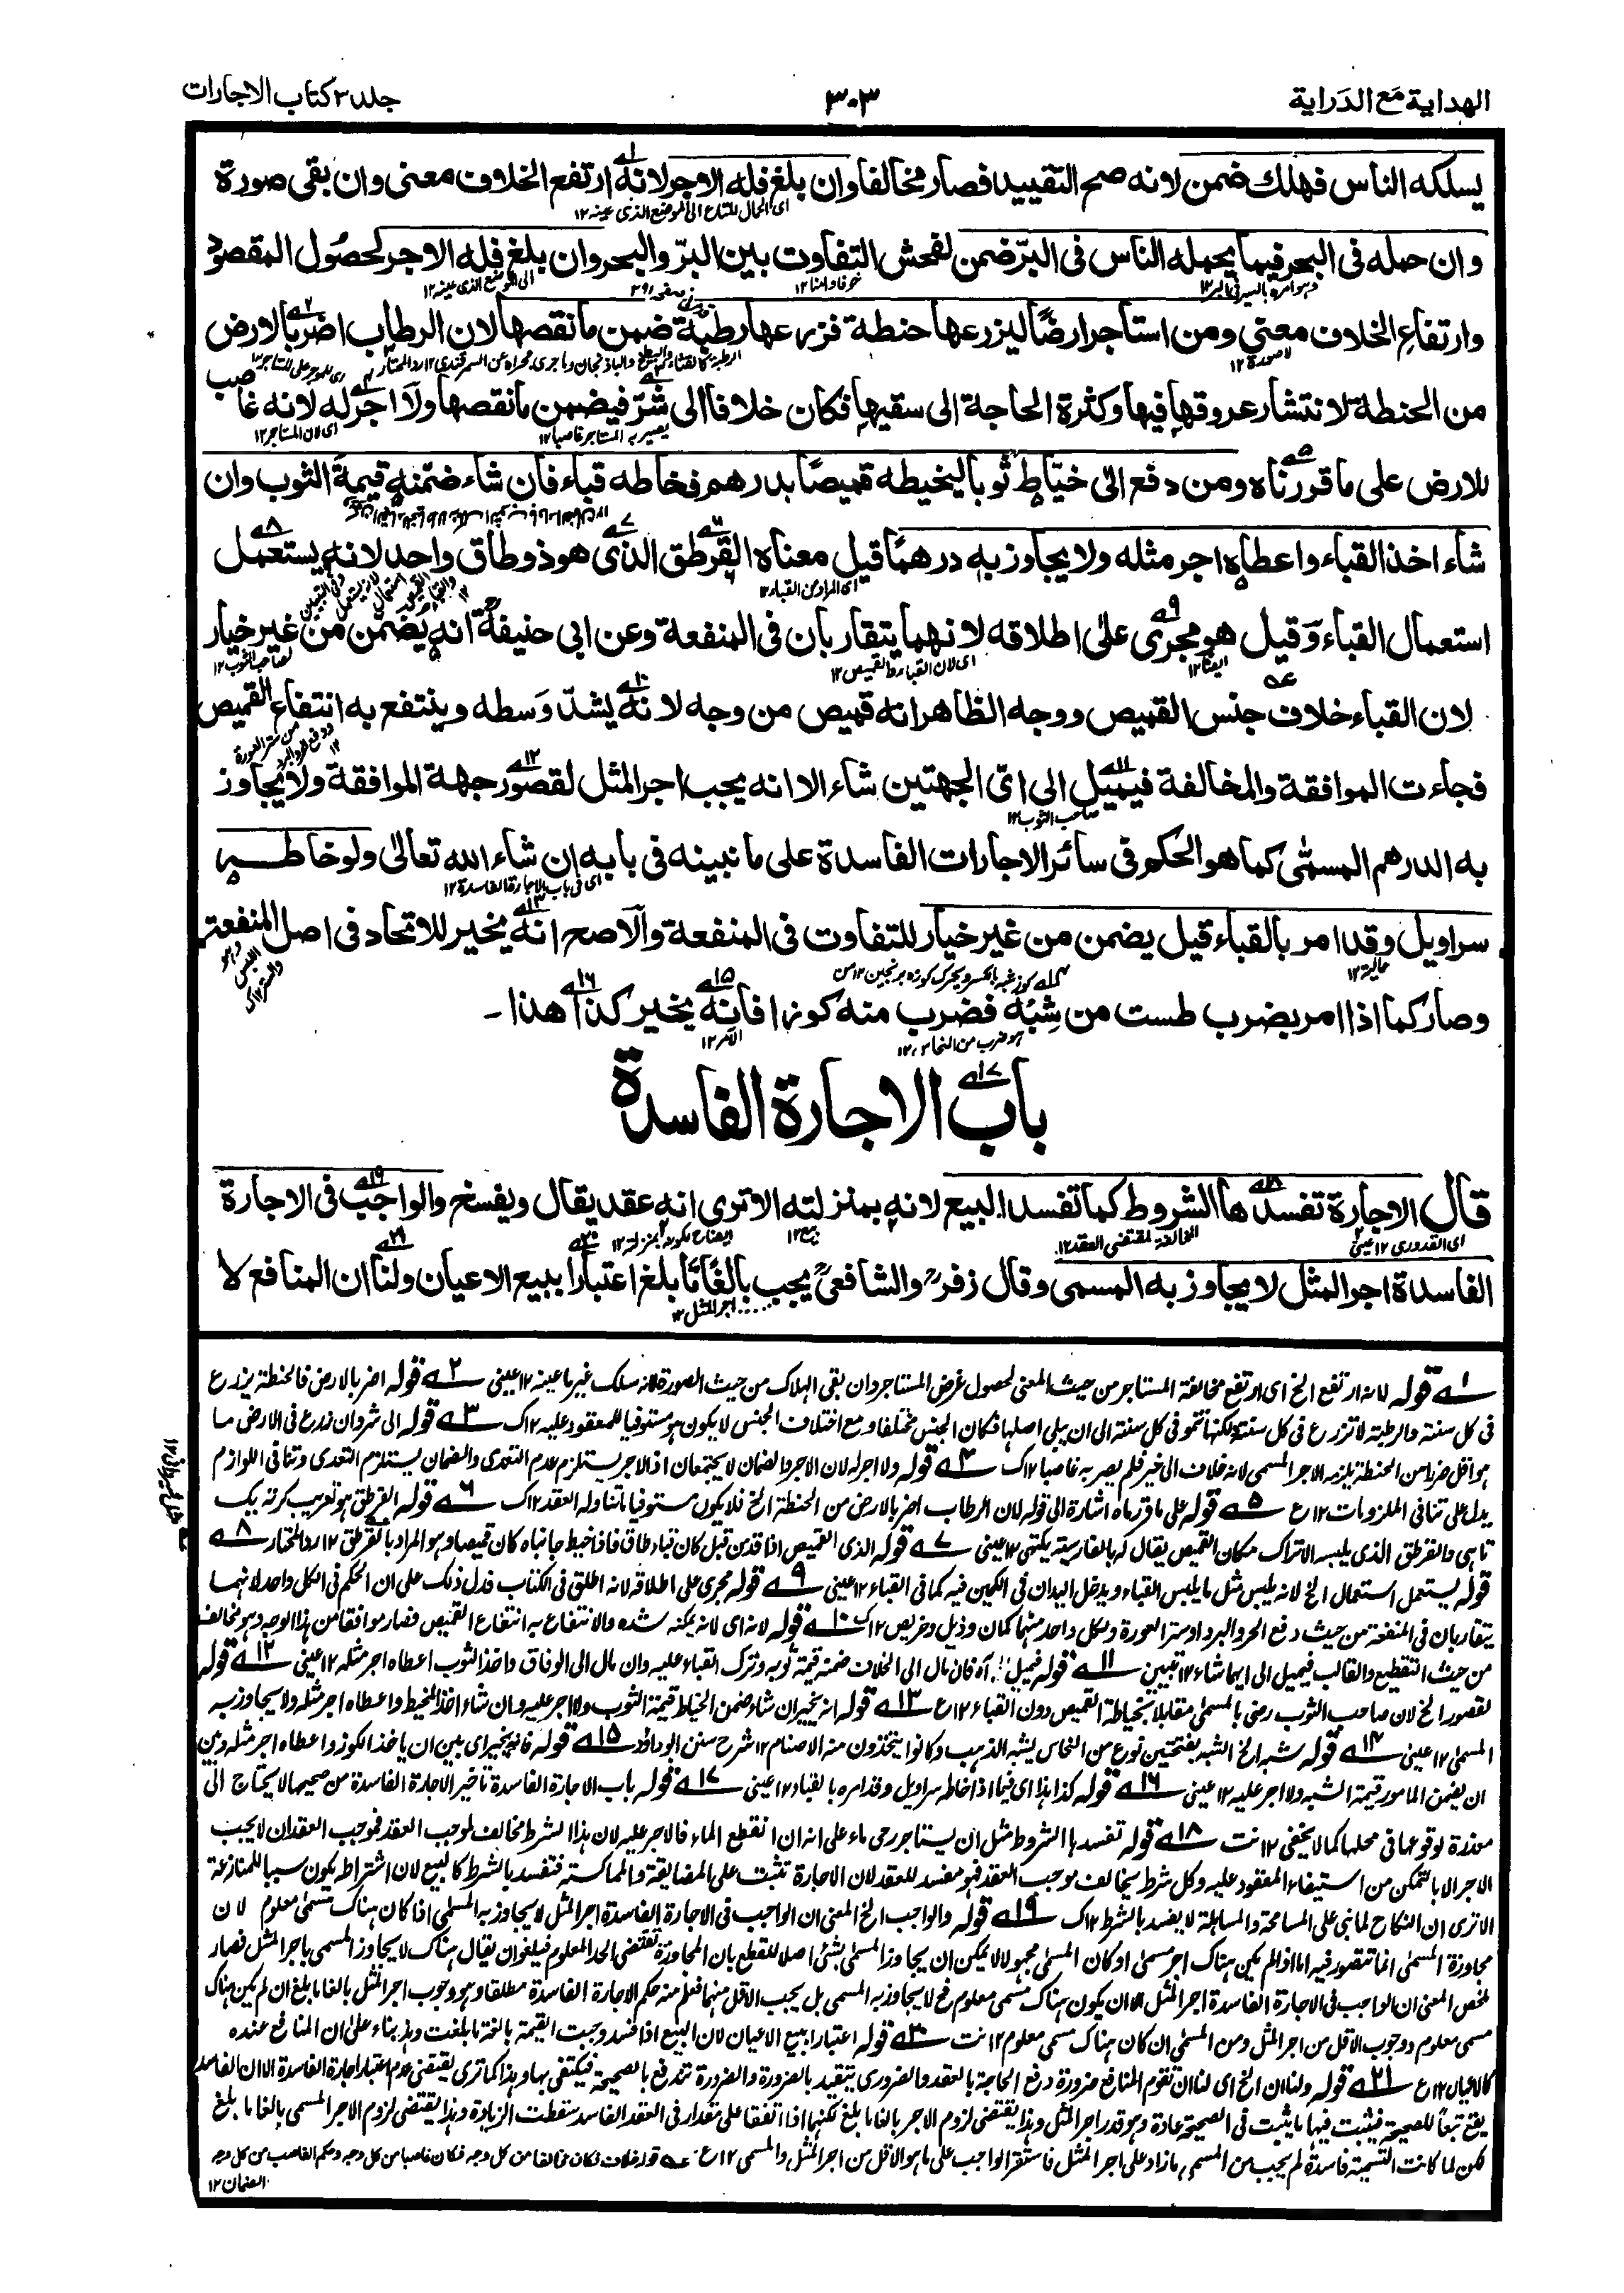 الهداية مع الدراية
٣٠٣
جلد ٣ كتاب الاجارات
يسلكه الناس فهلك ضمن لانه صح التقييد فصار مخالفا وان بلغ فله الاجر لانه ارتفع الخلاف معنى وان بقى صورة
اى الحمال المتاع الى الموضع الذى عينه ١٢
وان حمله فى البحر فيما يحمله الناس فى البرّ ضمن لفحش التفاوت بين البرّ والبحر وان بلغ فله الاجر لحصول المقصود
الى الموضع الذى عينه ١٢
وارتفاع الخلاف معنى ومن استاجر ارضًا ليزرعها حنطة فزرعها رطبة ضمن ما نقصها لان الرطاب اضر بالارض
لا صورة ١٢
من الحنطة لانتشار عروقها فيها وكثرة الحاجة الى سقيها فكان خلافا الى شرّ فيضمن ما نقصها ولا اجر له لانه غاصب
يصير به المستاجر غاصبا ١٢
اى لان المستاجر ١٢
للارض على ما قررناه ومن دفع الى خيّاط ثوبا ليخيطه قميصًا بدرهم فخاطه قباء فان شاء ضمّنه قيمة الثوب وان
شاء اخذ القباء واعطاه اجر مثله ولا يجاوز به درهمًا قيل معناه القرطق الذى هو ذو طاق واحد لانه يستعمل
اى المراد من القباء ١٢
استعمال القباء وقيل هو مجرى على اطلاقه لانهما يتقاربان فى المنفعة وعن ابى حنيفةؒ انه يضمن من غير خيار
ايضا ١٢
اى لان القباء والقميص ١٢
لصاحب الثوب ١٢
لان القباء خلاف جنس القميص ووجه الظاهر انه قميص من وجه لانه يشدّ وسطه وينتفع به انتفاع القميص
فجاءت الموافقة والمخالفة فيميل الى اىّ الجهتين شاء الا انه يجب اجر المثل لقصور جهة الموافقة ولا يجاوز
صاحب الثوب ١٢
به الدرهم المسمّى كما هو الحكم فى سائر الاجارات الفاسدة على ما نبينه فى بابه ان شاء الله تعالى ولو خاطه
اى فى باب الاجارة الفاسدة ١٢
سراويل وقد امر بالقباء قيل يضمن من غير خيار للتفاوت فى المنفعة والاصح انه يخير للاتحاد فى اصل المنفعة
حالية ١٢
وصار كما اذا امر بضرب طست من شبه فضرب منه كوزا فانه يخير كذا هذا۔
هو ضرب من النحاس ١٢
الآمر ١٢
باب الاجارة الفاسدة
قال الاجارة تفسدها الشروط كما تفسد البيع لانه بمنزلته الا ترى انه عقد يقال ويفسخ والواجب فى الاجارة
اى القدورى ١٢ عينى
المخالفة لمقتضى العقد ١٢
بيع ١٢
الفاسدة اجر المثل لا يجاوز به المسمى وقال زفرؒ والشافعىؒ يجب بالغًا ما بلغ اعتبارا ببيع الاعيان ولنا ان المنافع لا
اجر المثل ١٢
١ قوله لانه ارتفع الخ اى ارتفع مخالفة المستاجر من حيث المعنى لحصول غرض المستاجر وان بقى الهلاك من حيث الصورة لانه سلك غير ما عينه ١٢ عينى ٢ قوله اضر بالارض فالحنطة يزرع
فى كل سنة والرطبة لا تزرع فى كل سنة ولكنها تنمو فى كل سنة الى ان يبلى اصلها فكان الجنس مختلفا ومع اختلاف الجنس لا يكون هو مستوفيا للمعقود عليه ١٢ك ٣ قوله الى شر وان زرع فى الارض ما
هو اقل ضررا من الحنطة يلزمه الاجر المسمى لانه خلاف الى خير فلم يصر به غاصبا ١٢ك ٤ قوله ولا اجر له لان الاجر والضمان لا يجتمعان اذ الاجر يستلزم عدم التعدى والضمان يستلزم التعدى وتنافى اللوازم
يدل على تنافى الملزومات ١٢ع ٥ قوله على ما قررناه اشارة الى قوله لان الرطاب اضر بالارض من الحنطة الخ فلا يكون مستوفيا ما تناوله العقد ١٢ك ٦ قوله القرطق هو تعريب كرته يك
تاهى والقرطق الذى يلبسه الاتراك مكان القميص يقال له بالفارسية يكتهى ١٢ عينى ٧ قوله الذى القميص اذا قد من قبل كان قباء طاق فاذا خيط جانباه كان قميصا وهو المراد بالقرطق ١٢ رد المختار ٨
قوله يستعمل استعمال الخ لانه يلبس مثل ما يلبس القباء ويدخل اليدان فى الكمين فيه كما فى القباء ١٢ عينى ٩ قوله مجرى على اطلاقه لانه اطلق فى الكتاب فدل ذلك على ان الحكم فى الكل واحد لانهما
يتقاربان فى المنفعة من حيث دفع الحر والبرد وستر العورة ولكل واحد منهما كمان وذيل ودخريص ١٢ك ١٠ قوله لانه اى لانه يمكنه شده والانتفاع به انتفاع القميص فصار موافقا من هذا الوجه وهو مخالف
من حيث التقطيع والقالب فيميل الى ايهما شاء ١٢ تبيين ١١ قوله فيميل آه فان مال الى الخلاف ضمنه قيمة ثوبه وترك القباء عليه وان مال الى الوفاق واخذ الثوب اعطاه اجر مثله ١٢ عينى ١٢ قوله
لقصور الخ لان صاحب الثوب رضى بالمسمى مقابلا بخياطة القميص دون القباء ١٢ع ١٣ قوله انه يخير ان شاء ضمن الخياط قيمة الثوب ولا اجر عليه وان شاء اخذ المخيط واعطاه اجر مثله ولا يجاوز به
المسمى ١٢ عينى ١٤ قوله شبه الخ الشبه بفتحتين نوع من النحاس يشبه الذهب وكانوا يتخذون منه الاصنام ١٢ شرح سنن ابو داؤد ١٥ قوله فانه يخير اى بين ان ياخذ الكوز واعطاه اجر مثله وبين
ان يضمن المامور قيمة الشبه ولا اجر عليه ١٢ عينى ١٦ قوله كذا هذا اى فيما اذا خاطه سراويل وقد امره بالقباء ١٢ عينى ١٧ قوله باب الاجارة الفاسدة تاخير الاجارة الفاسدة من صحيحها لا يحتاج الى
معذرة لوقوعها فى محلها كما لا يخفى ١٢ نت ١٨ قوله تفسدها الشروط مثل ان يستاجر رحى ماء على انه ان انقطع الماء فالاجر عليه لان هذا الشرط مخالف لموجب العقد فموجب العقد ان لا يجب
الاجر الا بالتمكن من استيفاء المعقود عليه وكل شرط يخالف موجب العقد فهو مفسد للعقد لان الاجارة تثبت على المضايقة والمماكسة فتفسد بالشرط كالبيع لان اشتراطه يكون سببا للمنازعة
الا ترى ان النكاح لما بنى على المسامحة والمساهلة لا يفسد بالشرط ١٢ك ١٩ قوله والواجب الخ المعنى ان الواجب فى الاجارة الفاسدة اجر المثل لا يجاوز به المسمى اذا كان هناك مسمى معلوم لان
مجاوزة المسمى انما تتصور فيه اما اذا لم يكن هناك اجر مسمى او كان المسمى مجهولا لا يمكن ان يجاوز المسمى بشئ اصلا للقطع بان المجاوزة تقتضى الحد المعلوم فيلغو ان يقال هناك لا يجاوز المسمى باجر المثل فصار
ملخص المعنى ان الواجب فى الاجارة الفاسدة اجر المثل الا ان يكون هناك مسمى معلوم فح لا يجاوز به المسمى بل يجب الاقل منهما فعلم منه حكم الاجارة الفاسدة مطلقا وهو وجوب اجر المثل بالغا ما بلغ ان لم يكن هناك
مسمى معلوم ووجوب الاقل من اجر المثل ومن المسمى ان كان هناك مسمى معلوم ١٢ نت ٢٠ قوله اعتبارا ببيع الاعيان لان البيع اذا فسد وجبت القيمة بالغة ما بلغت وهذ بناء على ان المنافع عنده
كالاعيان ١٢ع ٢١ قوله ولنا ان الخ اى لنا ان تقوم المنافع ضرورة دفع الحاجة بالعقد والضرورى يتقيد بالضرورة والضرورة تندفع بالصحيحة فيكتفى بها وهذا كما ترى يقتضى عدم اعتبار اجارة الفاسدة الا ان الفاسد
يقع تبعاً للصحيحة فيثبت فيها ما يثبت فى الصحيحة عادة وهو قدر اجر المثل وهذا يقتضى لزوم الاجر بالغا ما بلغ لكنهما اذا اتفقا على مقدار فى العقد الفاسد سقطت الزيادة وهذا يقتضى لزوم الاجر المسمى بالغا ما بلغ
لكن لما كانت التسمية فاسدة لم يجب من المسمى ما زاد على اجر المثل فاستقر الواجب على ما هو الاقل من اجر المثل والمسمى ١٢ع عه قوله خلاف فكان مخالفا من كل وجه فكان غاصبا من كل وجه وحكم الغاصب من كل وجه
الضمان ١٢